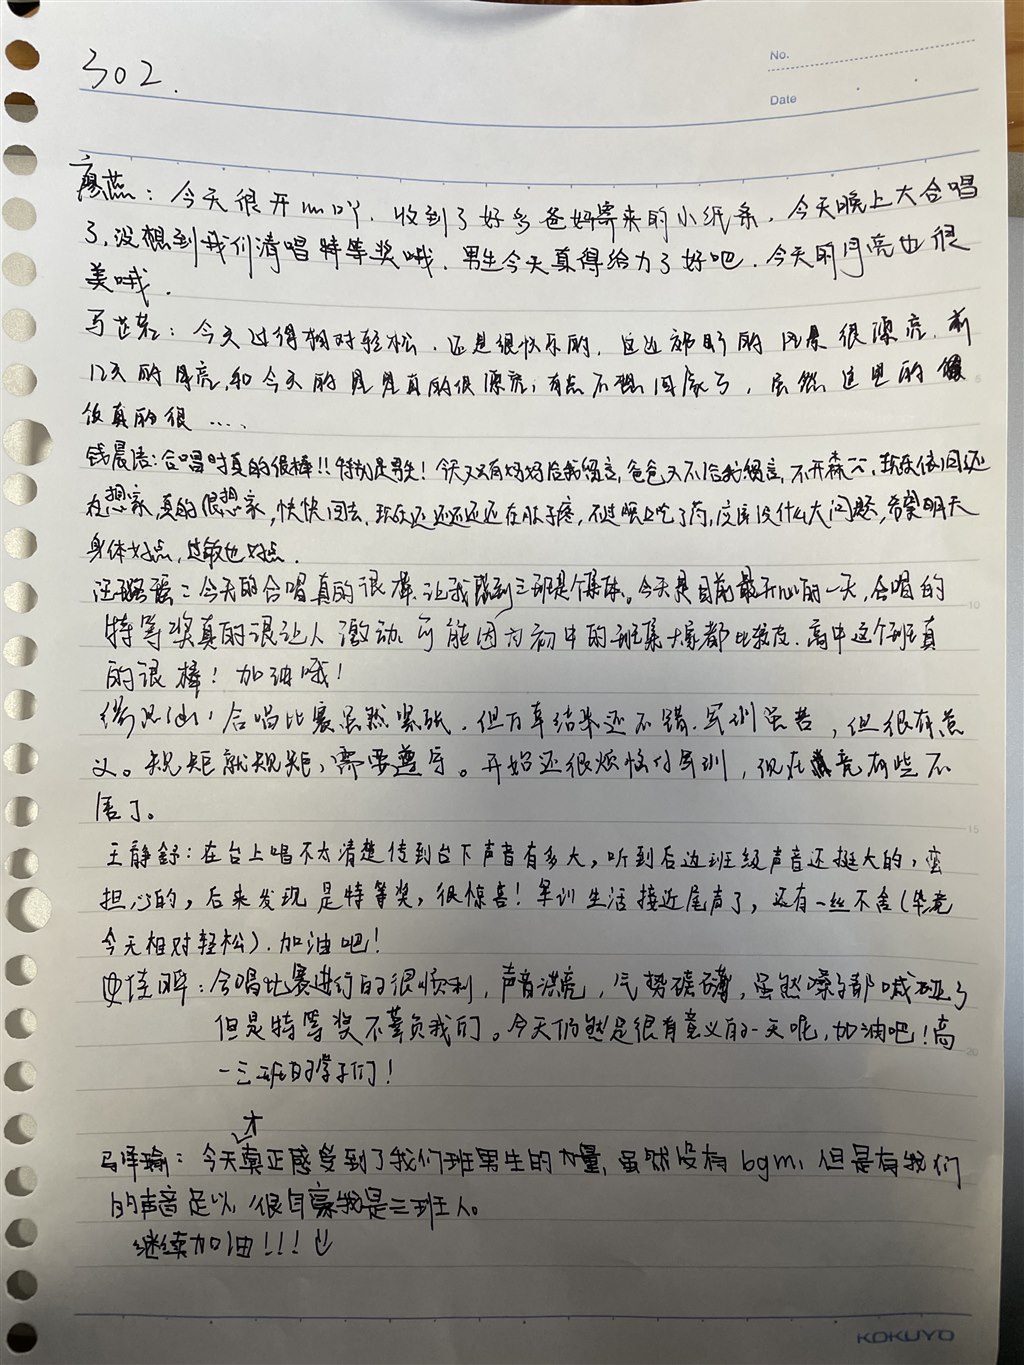 No.
302.
Date
廖燕：今天很开心吖．收到了好多爸妈寄来的小纸条．今天晚上大合唱
了，没想到我们清唱特等奖哦．男生今天真得给力了好吧．今天的月亮也很
美哦．
马芷：今天过得相对轻松．还是很快乐的．这边郊野的风景很漂亮．前
12天的月亮和今天的月是真的很漂亮；有点不想回家了，虽然这里的
饭真的很……
钱晨语：合唱时真的很棒！！特别是男生！今天又有妈妈给我留言，爸爸又不给我留言，不开森．现在依旧还
在想家，真的很想家，快快回去，现在还还还还还在肚子疼，不过晚上吃了药，应该没什么大问题，希望明天
身体好点，过敏也好点．
汪：今天的合唱真的很棒．让我感到三班是个集体。今天是目前最开心的一天，合唱的
特等奖真的很让人激动．可能因为初中的班集大家都比较皮．高中这个班真
的很棒！加油哦！
合唱比赛虽然紧张．但万幸结果还不错．军训虽苦，但很有意
义。规矩就规矩，需要遵守。开始还很烦恼付军训，现在竟有些不
舍了。
王静舒：在台上唱不太清楚传到台下声音有多大，听到后边班级声音还挺大的，蛮
担心的，后来发现是特等奖，很惊喜！军训生活接近尾声了，还有一丝不舍（毕竟
今天相对轻松）．加油吧！
史佳晔：合唱比赛进行的很顺利，声音洪亮，气势磅礴，虽然嗓子都喊哑了
但是特等奖不辜负我们。今天仍然是很有意义的一天呢，加油吧！高
一三班的学子们！
才
马泽瑜：今天真正感受到了我们班男生的力量，虽然没有bgm，但是有我们
的声音足以，很自豪我是三班人。
继续加油！！！
5
10
15
20
KOKUYO